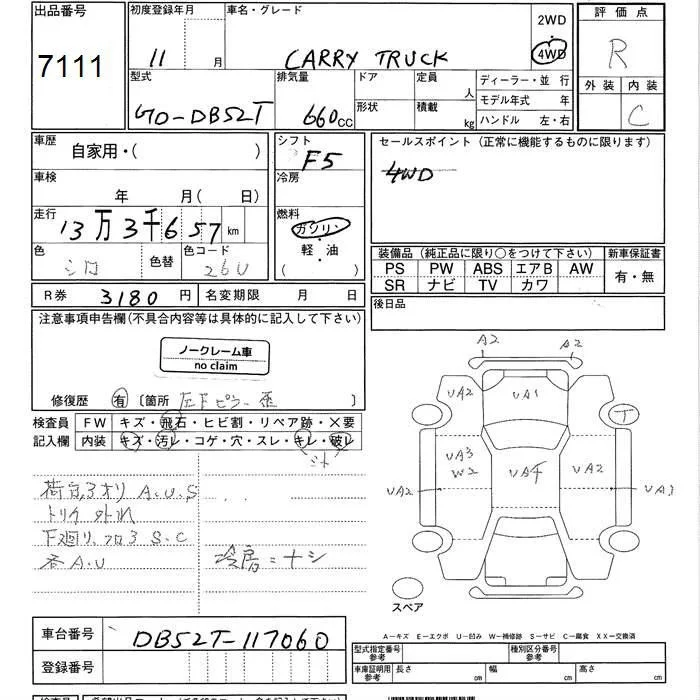 出品番号
7111
初度登録年月
11 月
車名・グレード
CARRY TRUCK
2WD
4WD
評価点
R
外装 内装
C
型式
GD-DB52T
排気量
660cc
ドア
形状
定員
人
積載
kg
ディーラー・並行
モデル年式 年
ハンドル 左・右
車歴
自家用・( )
シフト
F5
セールスポイント (正常に機能するものに限ります)
4WD
車検
年 月( 日)
冷房
走行
13万3千657km
燃料
ガソリン
軽・油
( )
色
シロ
色替
色コード
26U
装備品 (純正品に限り○をつけて下さい)
PS PW ABS エアB AW
SR ナビ TV カワ
新車保証書
有・無
R券 3180円
名変期限 月 日
後日品
注意事項申告欄(不具合内容等は具体的に記入して下さい)
ノークレーム車
no claim
修復歴 有 〔箇所 左Fピラー歪 〕
検査員
記入欄
FW キズ・飛石・ヒビ割・リペア跡・×要
内装 キズ・汚レ・コゲ・穴・スレ・キレ・破レ
シート
荷台,3オリ A.U.S
トリイ 外れ
下廻り、フロ3 S.C
各A.U
冷房=ナシ
A2 A2
UA2 UA1
UA3
W2
UA4 UA2
UA2 UA3
スペア
A−キズ E−エクボ U−凹み W−補修跡 S−サビ C−腐食 XX−交換済
車台番号
DB52T-117060
登録番号
型式指定番号
参考
種別区分番号
参考
車庫証明用
参考
長さ cm
幅 cm
高さ cm